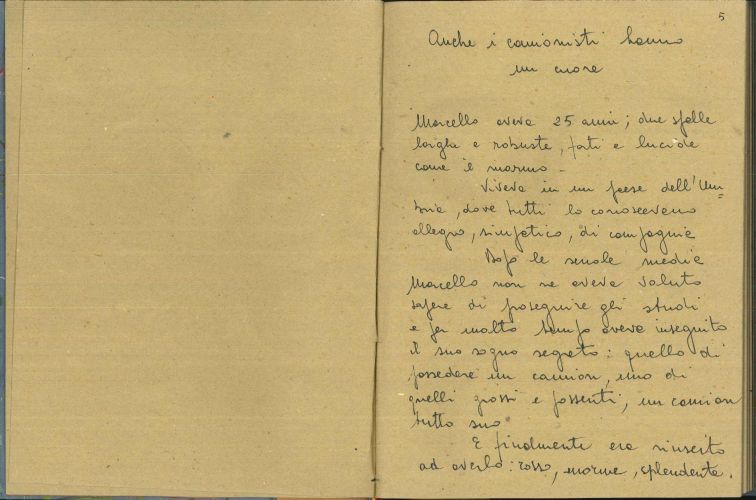 5
Anche i camionisti hanno
un cuore
Marcello aveva 25 anni; due spalle
larghe e robuste, forti e lucide
come il marmo -
Viveva in un paese dell'Um=
bria, dove tutti lo conoscevano
allegro, simpatico, di compagnia
Dopo le scuole medie
Marcello non ne aveva voluto
sapere di proseguire gli studi
e per molto tempo aveva inseguito
il suo sogno segreto: quello di
possedere un camion, uno di
quelli grossi e possenti, un camion
tutto suo
E finalmente era riuscito
ad averlo: rosso, enorme, splendente.